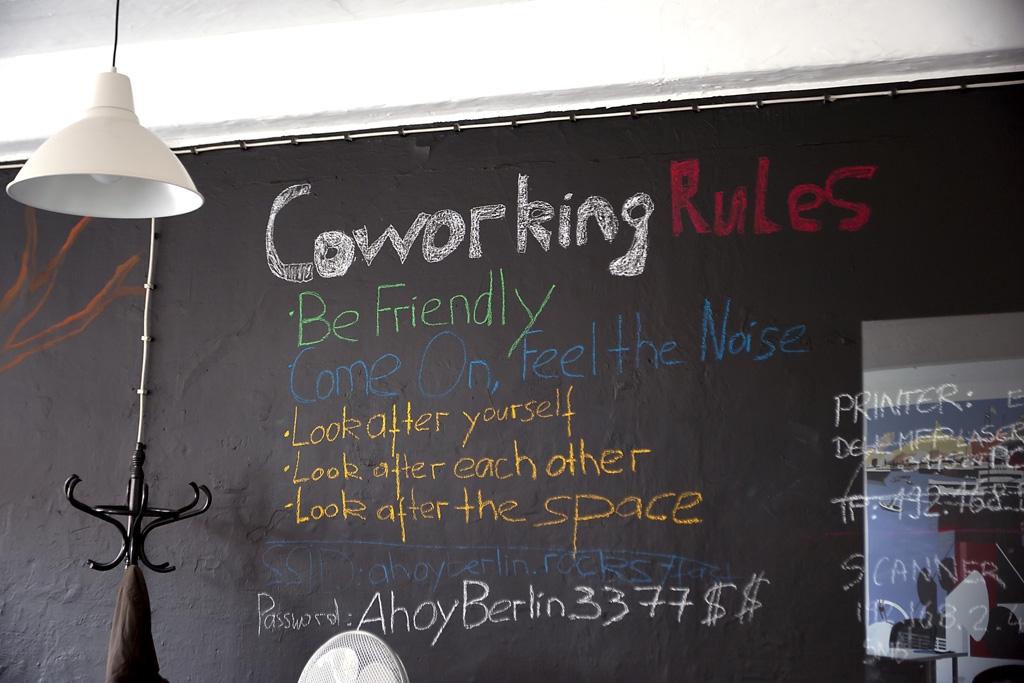 Coworking Rules
· Be Friendly
Come On, Feel the Noise
· Look after yourself
· Look after each other
· Look after the space
SSID: ahoyberlin.rocks
Password: AhoyBerlin3377$$
PRINTER:
DELL MFP LASER
IP: 192.168.
SCANNER